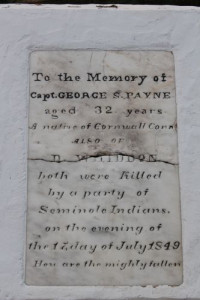 To the Memory of
Capt. GEORGE S. PAYNE
aged 32 years
A native of Cornwall Conn
Also of
D. WHIDDON
both were Killed
by a party of
Seminole Indians,
on the evening of
the 17, day of July 1849
How are the mighty fallen